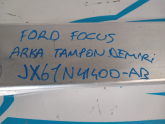 FORD FOCUS
ARKA TAMPON DEMİRİ
JX61N41400-AB